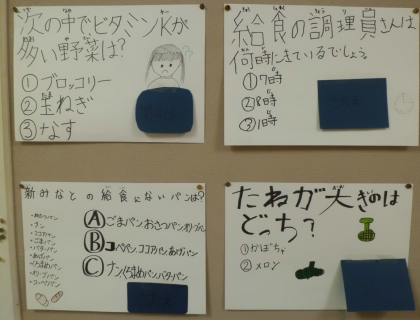 次の中でビタミンKが
多い野菜は?
①ブロッコリー
②玉ねぎ
③なす
給食の調理員さんは
何時にきているでしょう。
①7時
②8時
③1時
新みなとの給食にないパンは?
・ナン
・ココアパン
・ごまパン
・バターパン
・あげパン
・コッペパン
Ⓐごまパン,おさつパン,
Ⓑコッペパン,ココアパン,あげパン
Ⓒナン,バターパン
たねが大きのは
どっち?
①かぼちゃ
②メロン